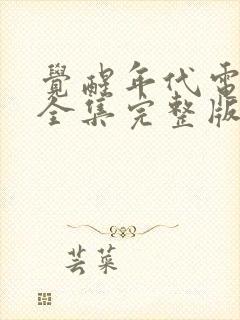 覺醒年代電
全集完整版
芸菜